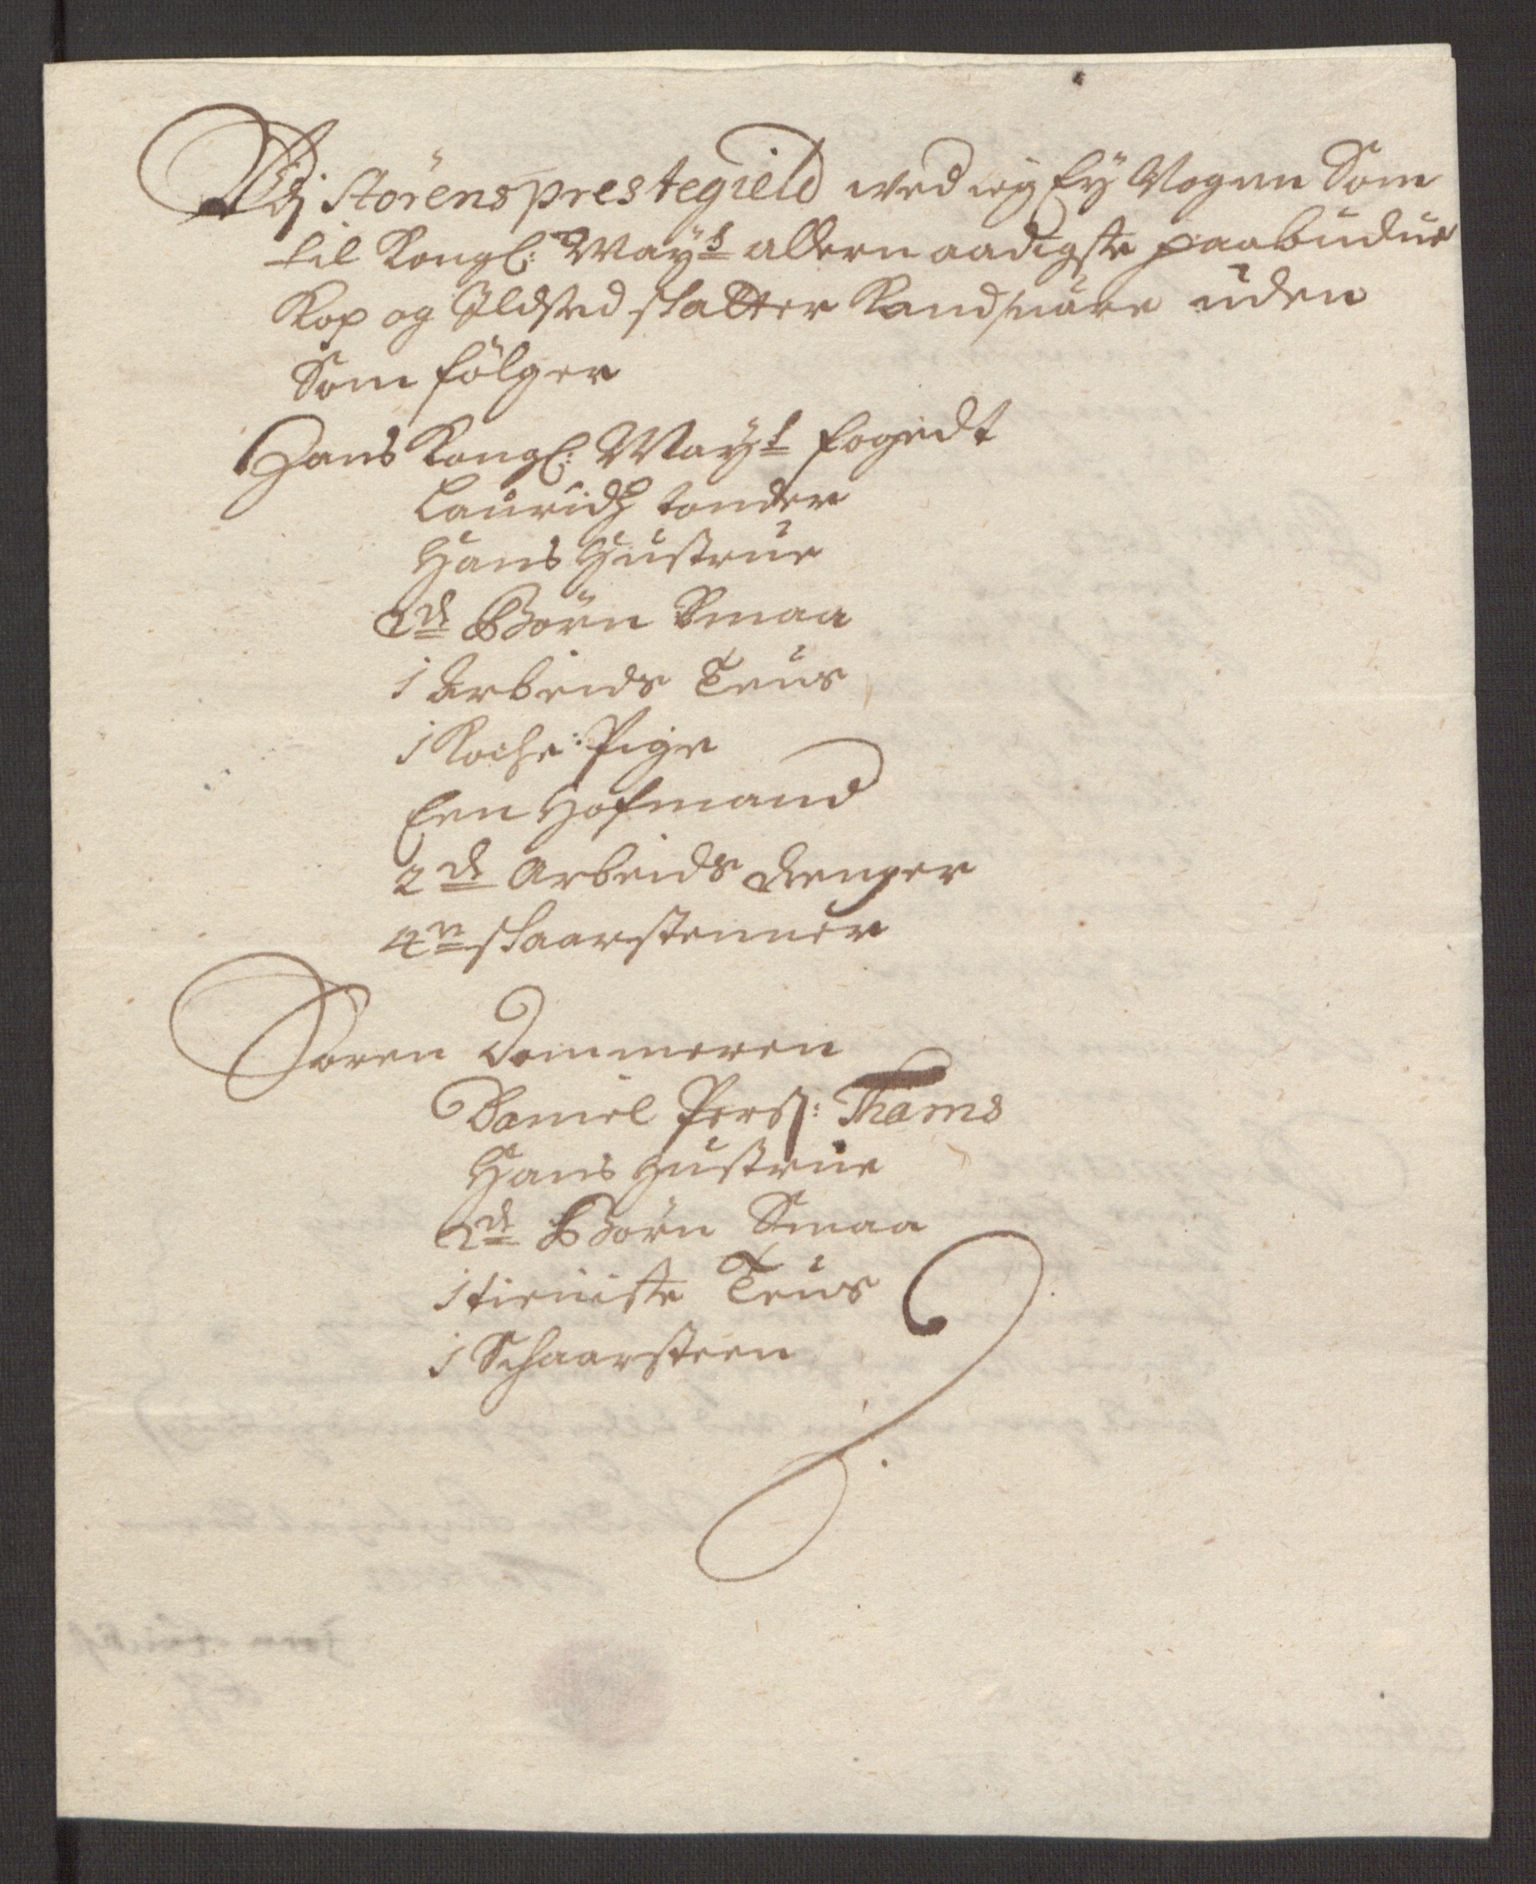 Udj Störens prestegield wed ieg Ey Nogen Som
til Kongl: Mayts allern aadigste paabudne
Kop og Ildsted skatter Kand suare uden
Som fölger
Hans Kongl: Mayts fogedt
Lauridtz tonder
Hans Hustrue
2de Börn Smaa
1 Arbeids Teus
1 Koche: Pige
Een Hofmand
2de Arbeids drenger
4re skaarstenner
Soren dommeren
Daniel Perss: Thams
Hans Hustrue
2de Börn Smaa
1 tieniste Teus
1 Schaarsteen